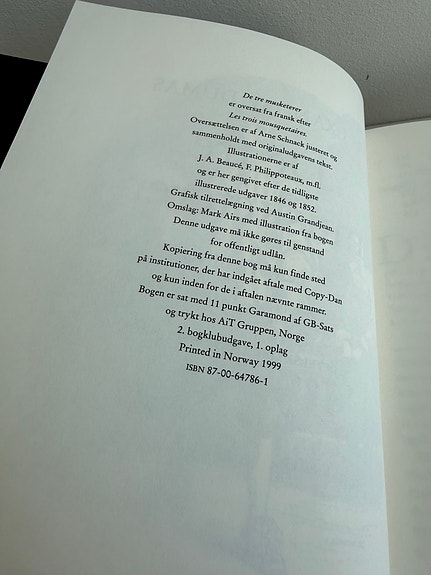 De tre musketerer
er oversat fra fransk efter
Les trois mousquetaires.
Oversættelsen er af Arne Schnack justeret og
sammenholdt med originaludgavens tekst.
Illustrationerne er af
J. A. Beaucé, F. Philippoteaux, m.fl.
og er her gengivet efter de tidligste
illustrerede udgaver 1846 og 1852.
Grafisk tilrettelægning ved Austin Grandjean.
Omslag: Mark Airs med illustration fra bogen
Denne udgave må ikke gøres til genstand
for offentligt udlån.
Kopiering fra denne bog må kun finde sted
på institutioner, der har indgået aftale med Copy-Dan
og kun inden for de i aftalen nævnte rammer.
Bogen er sat med 11 punkt Garamond af GB-Sats
og trykt hos AiT Gruppen, Norge
2. bogklubudgave, 1. oplag
Printed in Norway 1999
ISBN 87-00-64786-1